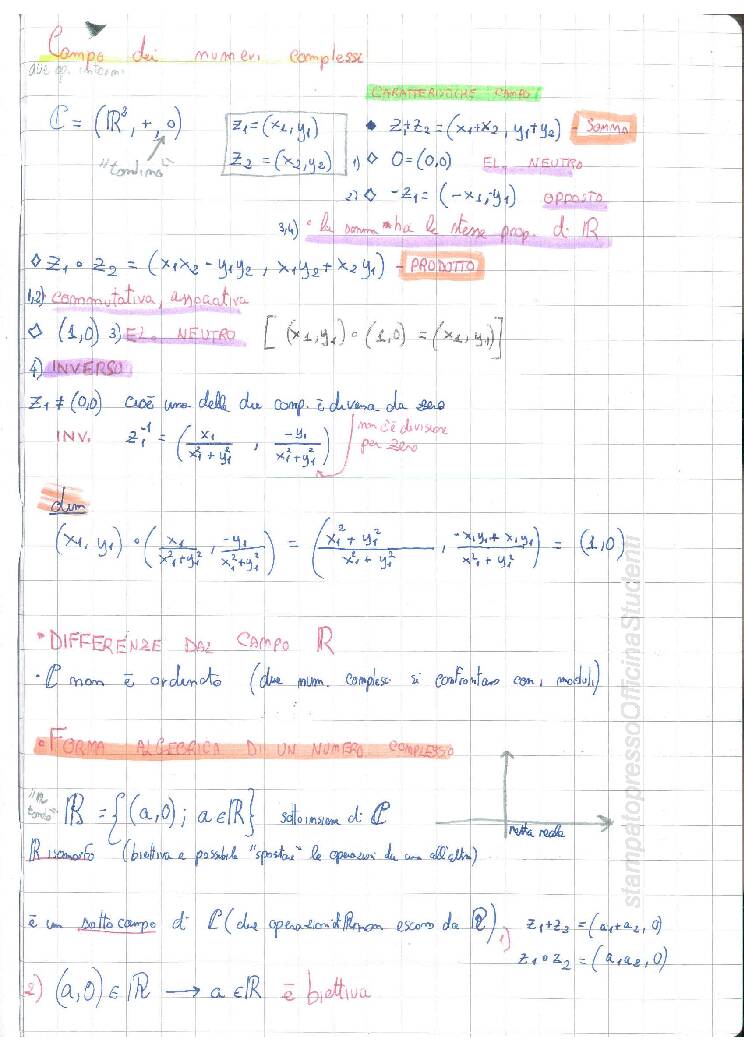 Campo dei numeri complessi
due op. interni
CARATTERISTICHE CAMPO
ℂ = (ℝ², +, ∘)
"tondino"
z₁ = (x₁, y₁)
z₂ = (x₂, y₂)
• z₁+z₂ = (x₁+x₂, y₁+y₂) - SOMMA
1) ◇ 0 = (0,0) EL. NEUTRO
2) ◇ -z₁ = (-x₁, -y₁) OPPOSTO
3,4) ◦ la somma ha le stesse prop. di ℝ
◇ z₁ ∘ z₂ = (x₁x₂ - y₁y₂ , x₁y₂ + x₂y₁) - PRODOTTO
1,2) commutativa, associativa
◇ (1,0) 3) EL. NEUTRO [ (x₁,y₁) ∘ (1,0) = (x₁,y₁) ]
4) INVERSO
z₁ ≠ (0,0) cioè una delle due comp. è diversa da zero
INV. z₁⁻¹ = (x₁/(x₁²+y₁²) , -y₁/(x₁²+y₁²))
non c'è divisione
per zero
dim
(x₁, y₁) ∘ (x₁/(x₁²+y₁²) , -y₁/(x₁²+y₁²)) = ((x₁²+y₁²)/(x₁²+y₁²) , (-x₁y₁+x₁y₁)/(x₁²+y₁²)) = (1,0)
• DIFFERENZE DAL CAMPO ℝ
• ℂ non è ordinato (due num. complessi si confrontano con i moduli)
• FORMA ALGEBRICA DI UN NUMERO COMPLESSO
"R tondo" ℝ = {(a,0); a ∈ ℝ} sottoinsieme di ℂ
retta reale
ℝ isomorfo (biettiva e possibile "spostare" le operazioni da una all'altra)
è un sotto campo di ℂ (due operazioni di ℝ non escono da ℝ)
1) z₁+z₂ = (a₁+a₂, 0)
z₁∘z₂ = (a₁a₂, 0)
2) (a,0) ∈ ℝ → a ∈ ℝ è biettiva
stampatopressoOfficinaStudenti